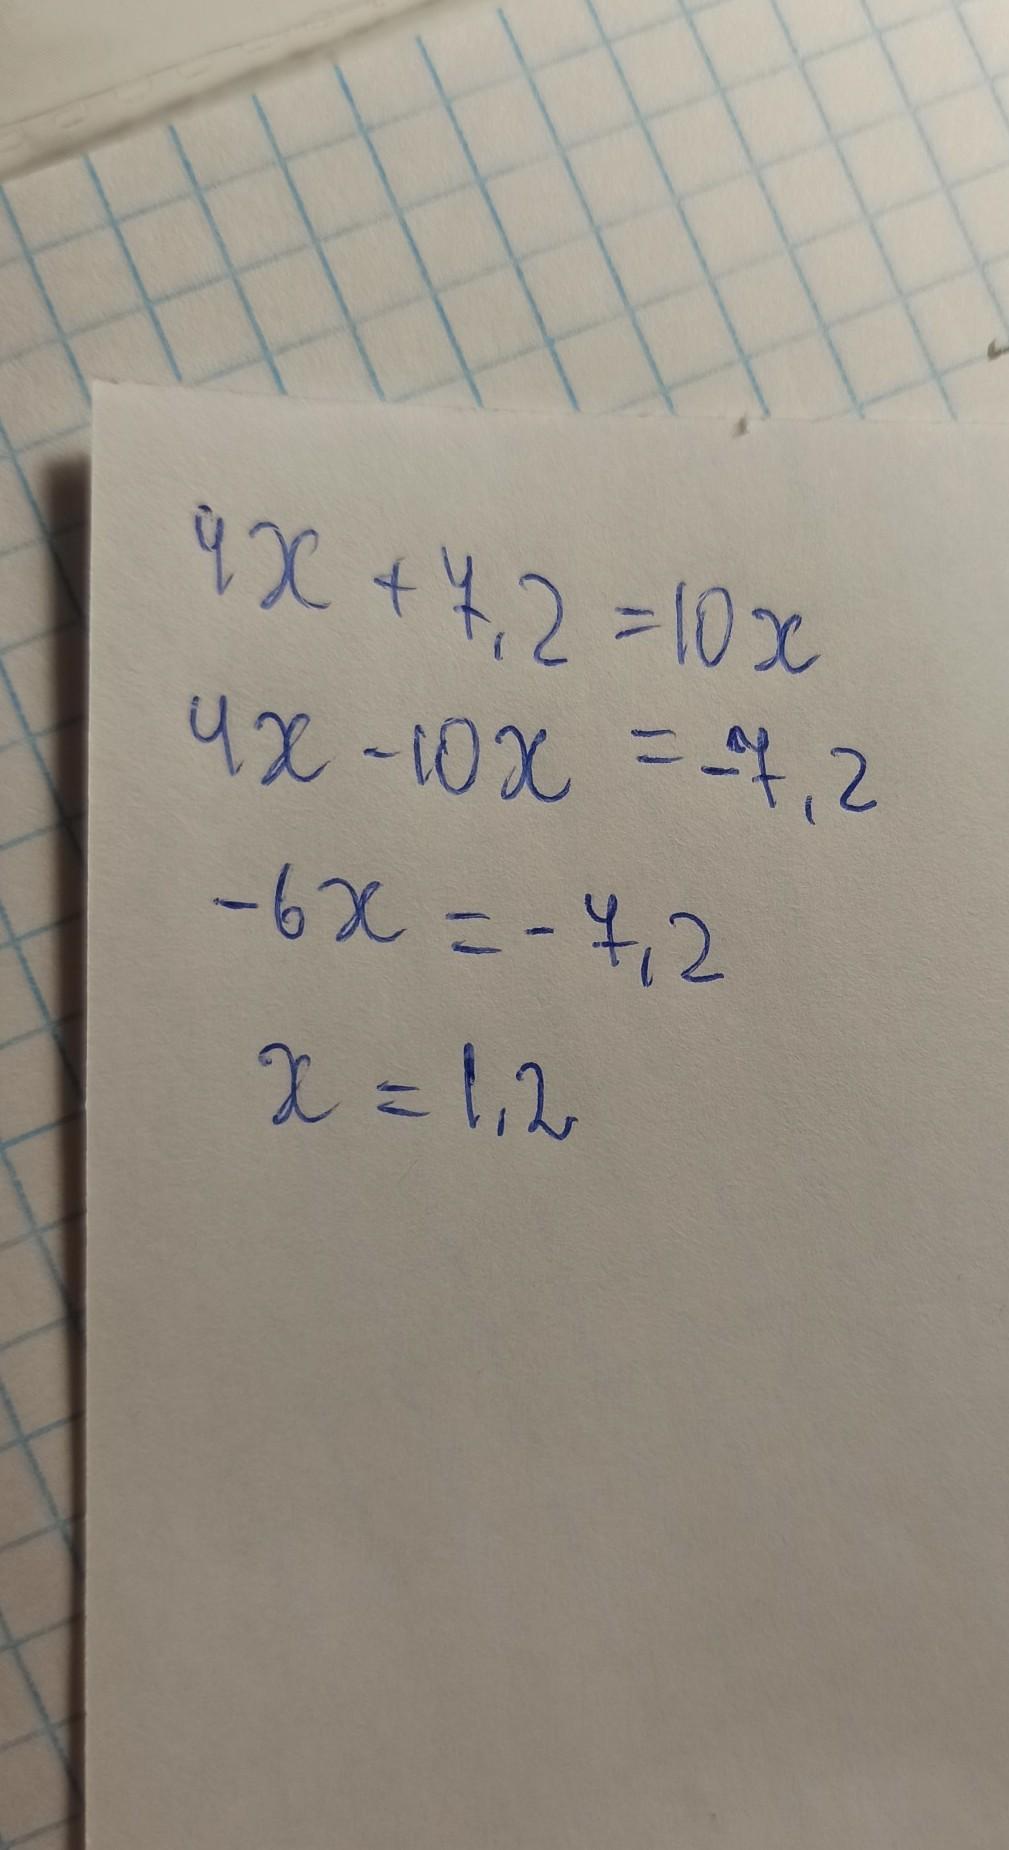 4x + 7,2 = 10x
4x - 10x = -7,2
-6x = -7,2
x = 1,2